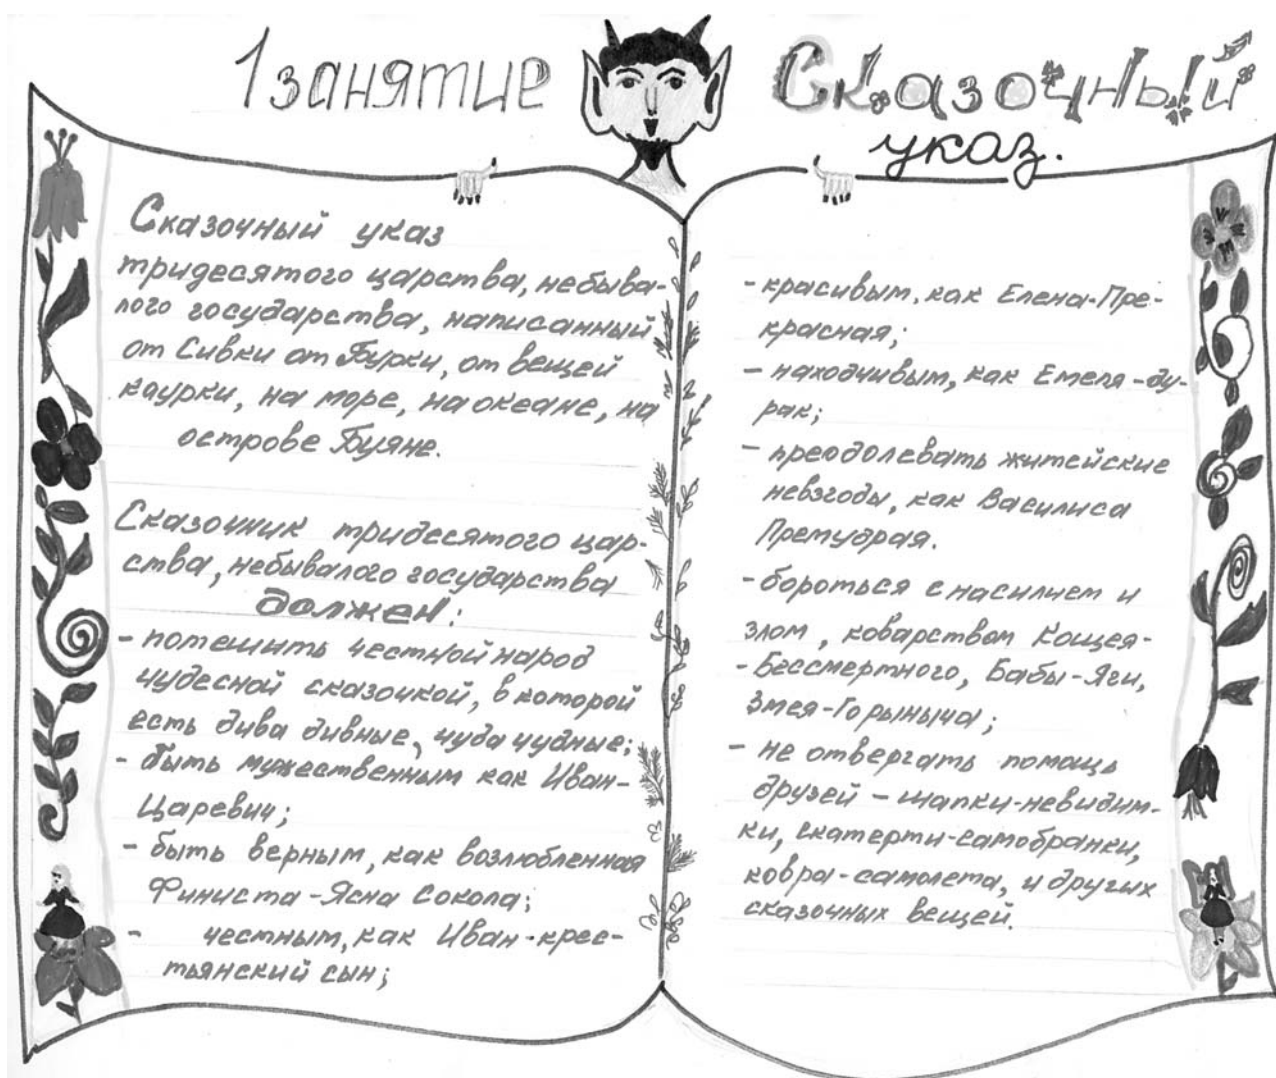 1 занятие Сказочный
указ.
Сказочный указ
тридесятого царства, небыва-
лого государства, написанный
от Сивки от Бурки, от вещей
каурки, на море, на океане, на
острове Буяне.
Сказочник тридесятого цар-
ства, небывалого государства
должен:
- потешить честной народ
чудесной сказочкой, в которой
есть дива дивные, чуда чудные;
- быть мужественным как Иван-
Царевич;
- быть верным, как возлюбленная
Финиста-Ясна Сокола;
- честным, как Иван-крес-
тьянский сын;
- красивым, как Елена-Пре-
красная;
- находчивым, как Емеля-ду-
рак;
- преодолевать житейские
невзгоды, как Василиса
Премудрая.
- бороться с насилием и
злом, коварством Кощея-
- Бессмертного, Бабы-Яги,
Змея-Горыныча;
- не отвергать помощь
друзей - шапки-невидим-
ки, скатерти-самобранки,
ковра-самолета, и других
сказочных вещей.